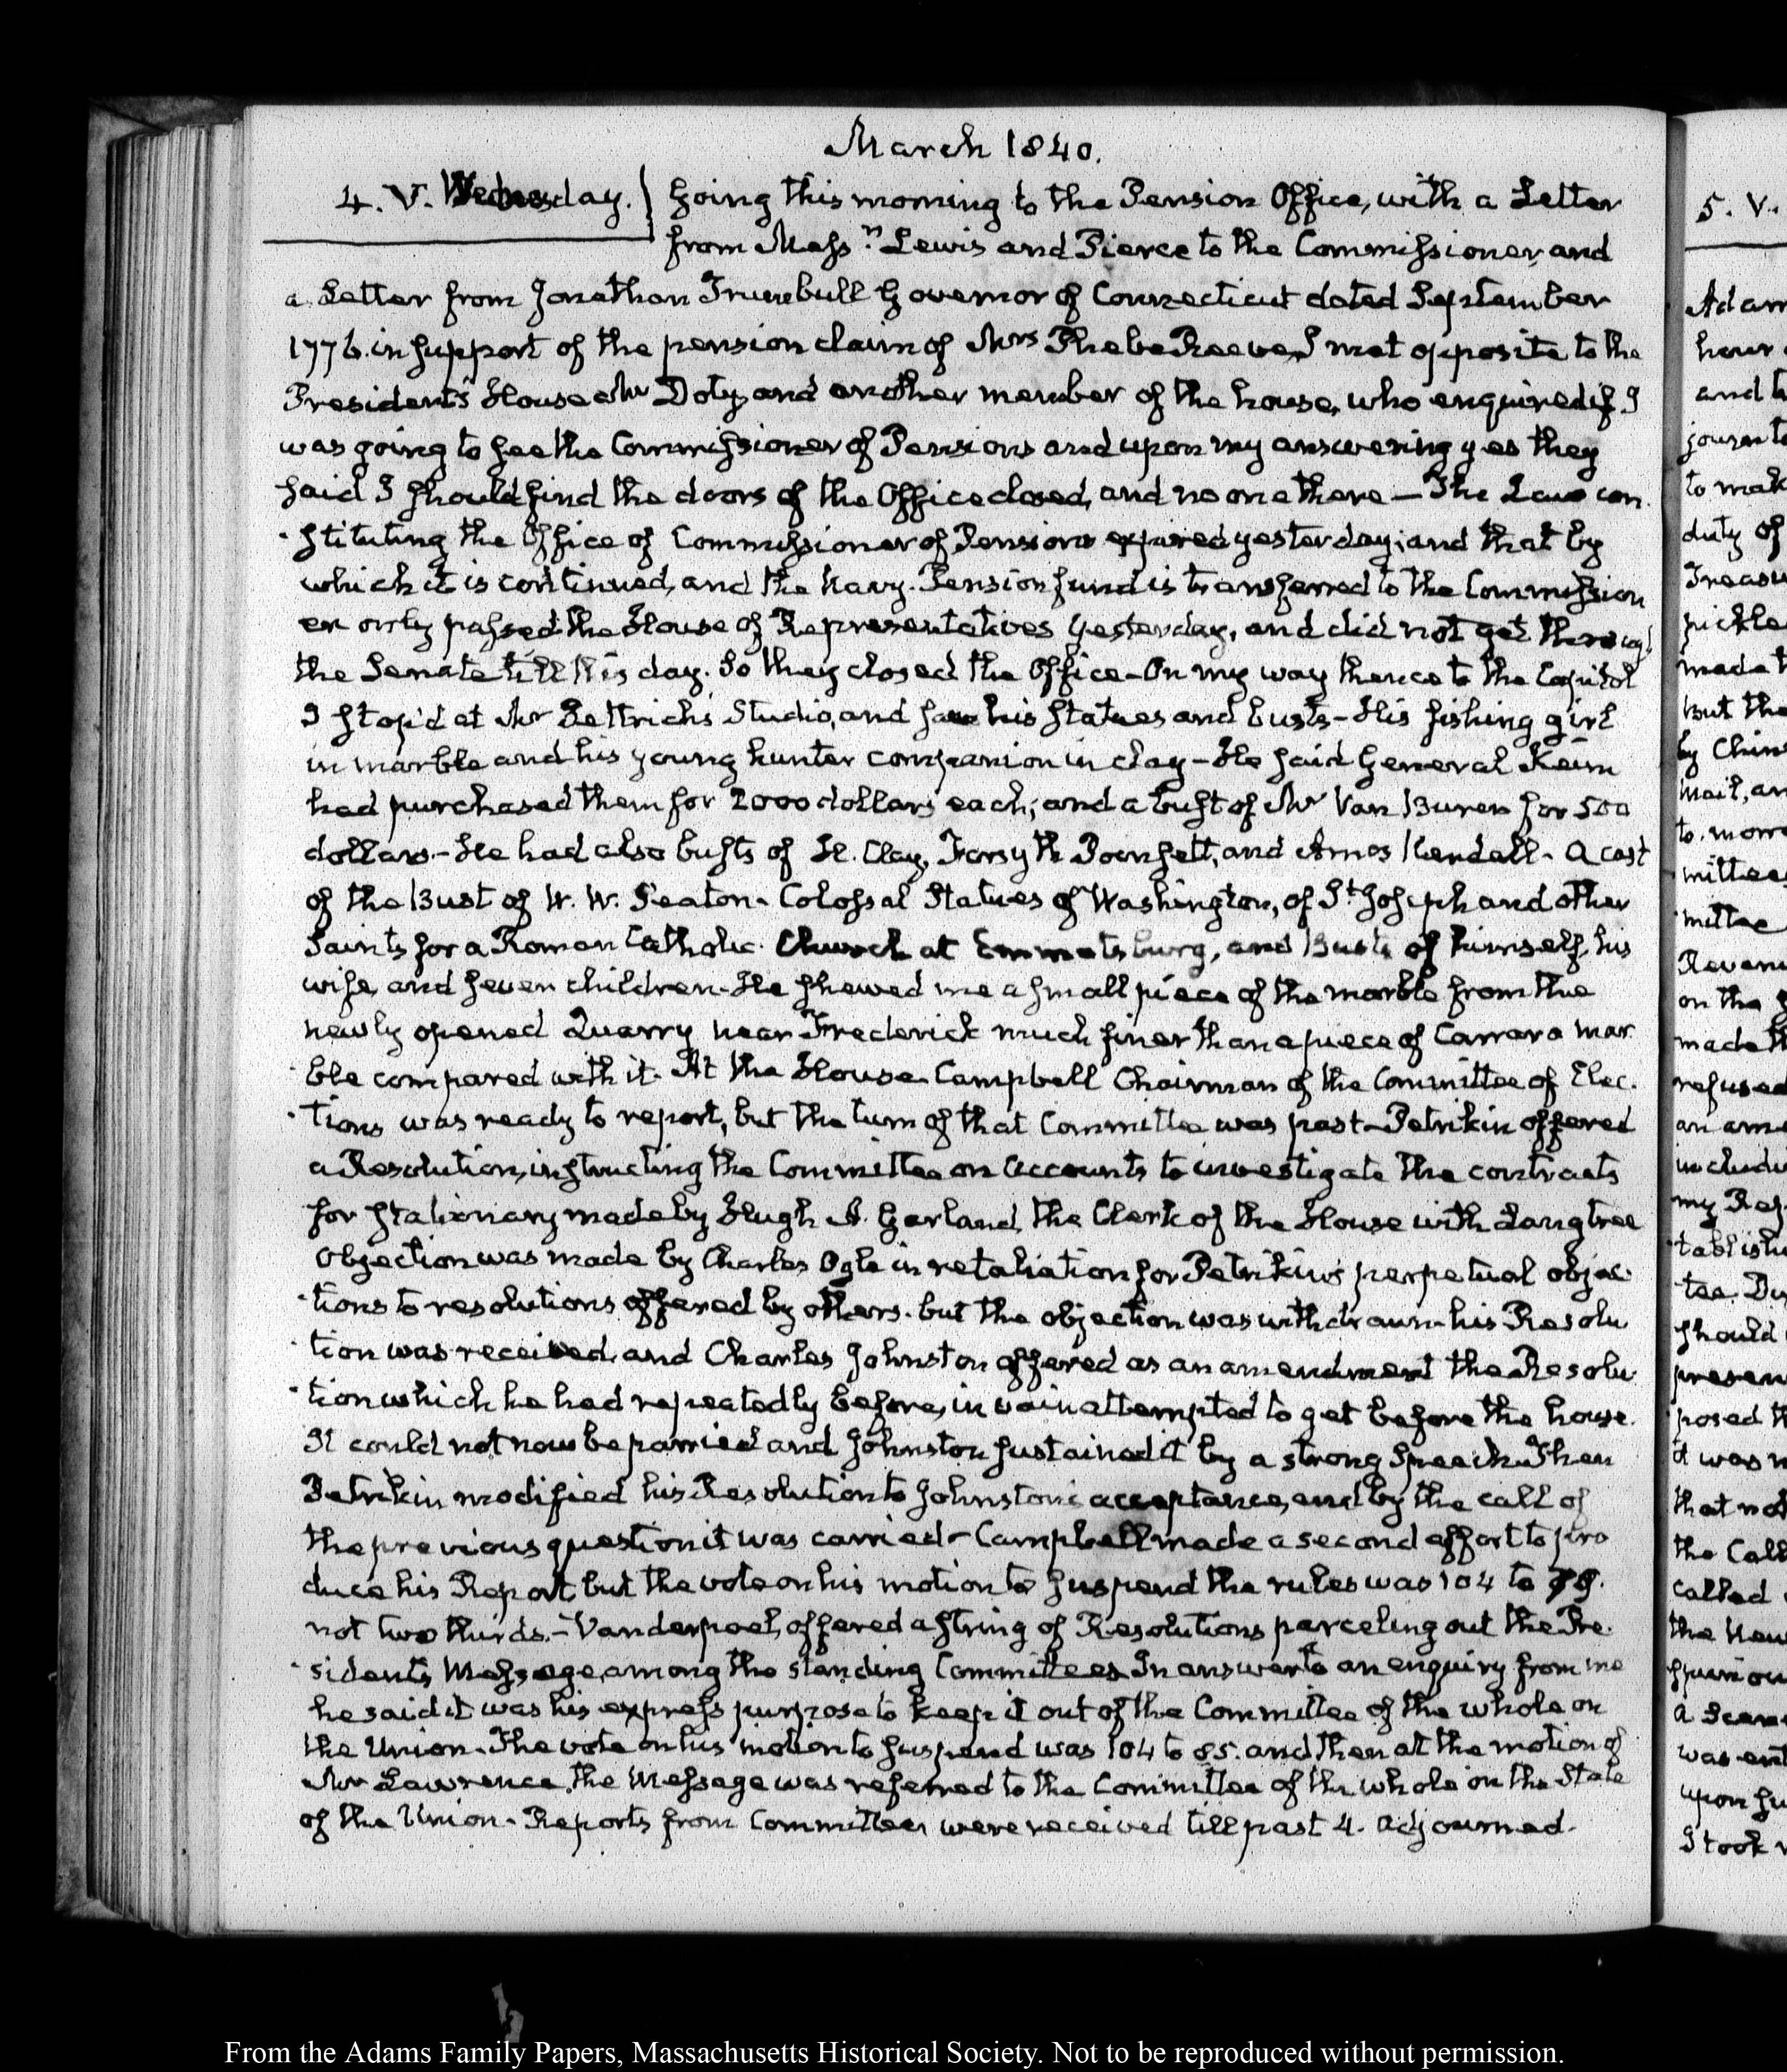 March 1840.
4. V. Wednesday. Going this morning to the Pension Office, with a Letter
from Mess.rs Lewis and Pierce to the Commissioner, and
a Letter from Jonathan Trumbull Governor of Connecticut dated September
1776. in support of the pension claim of Mrs Phebe Reeve, I met opposite to the
President's House Mr Doty, and another member of the house, who enquired if I
was going to see the Commissioner of Pensions and upon my answering yes they
said I should find the doors of the Office closed, and no one there — The Law con
stituting the Office of Commissioner of Pensions expired yesterday; and that by
which it is continued, and the Navy-Pension fund is transferred to the Commission
er only passed the House of Representatives yesterday, and did not get through
the Senate till this day. So they closed the Office - On my way thence to the Capitol
I stop'd at Mr Pettrich's Studio, and saw his Statues and busts - His fishing girl
in marble and his young hunter companion in clay - He said General Keim
had purchased them for 2000 dollars each; and a bust of Mr Van Buren for 500
dollars. - He had also busts of H. Clay, Forsyth, Poinsett, and Amos Kendall - a cast
of the Bust of W. W. Seaton - Colossal Statues of Washington, of St Joseph and other
Saints for a Roman Catholic Church at Emmetsburg, and Busts of himself, his
wife, and seven children. He shewed me a small piece of the marble from the
newly opened Quarry near Frederick much finer than a piece of Carrara mar
ble compared with it. At the House Campbell Chairman of the Committee of Elec-
tions was ready to report, but the turn of that Committee was past - Petrikin offered
a Resolution, instructing the Committee on Accounts to investigate the contracts
for stationary made by Hugh A. Garland, the Clerk of the House with Langtree
Objection was made by Charles Ogle in retaliation for Petrikin's perpetual objec-
tions to resolutions offered by others. but the objection was withdrawn - his Resolu
tion was received, and Charles Johnston offered as an amendment the Resolu-
tion which he had repeatedly before, in vain attempted to get before the house.
It could not now be parried and Johnston sustained it by a strong Speech. Then
Petrikin modified his Resolution to Johnston's acceptance, and by the call of
the previous question it was carried - Campbell made a second effort to pro
duce his Report but the vote on his motion to suspend the rules was 104 to
not two thirds. - Vanderpoel, offered a string of Resolutions parceling out the Pre-
sident's Message, among the standing Committees. In answer to an enquiry from me
he said it was his express purpose to keep it out of the Committee of the whole on
the Union. The vote on his motion to suspend was 104 to 85. and then at the motion of
Mr Lawrence, the Message was referred to the Committee of the whole on the State
of the Union. Reports from Committees were received till past 4. adjourned.
5. V.
Adam
hour
and
journ
to mak
duty of
Treasu
pickle
made
but the
by
mail, an
to. morr
mittee
mittee
Reven
on the
made
refused
an am
includi
my Res
tablish
tee.
should
presen
posed
it was
that
the Call
called
the
spuriou
a
was
upon
I took
From the Adams Family Papers, Massachusetts Historical Society. Not to be reproduced without permission.